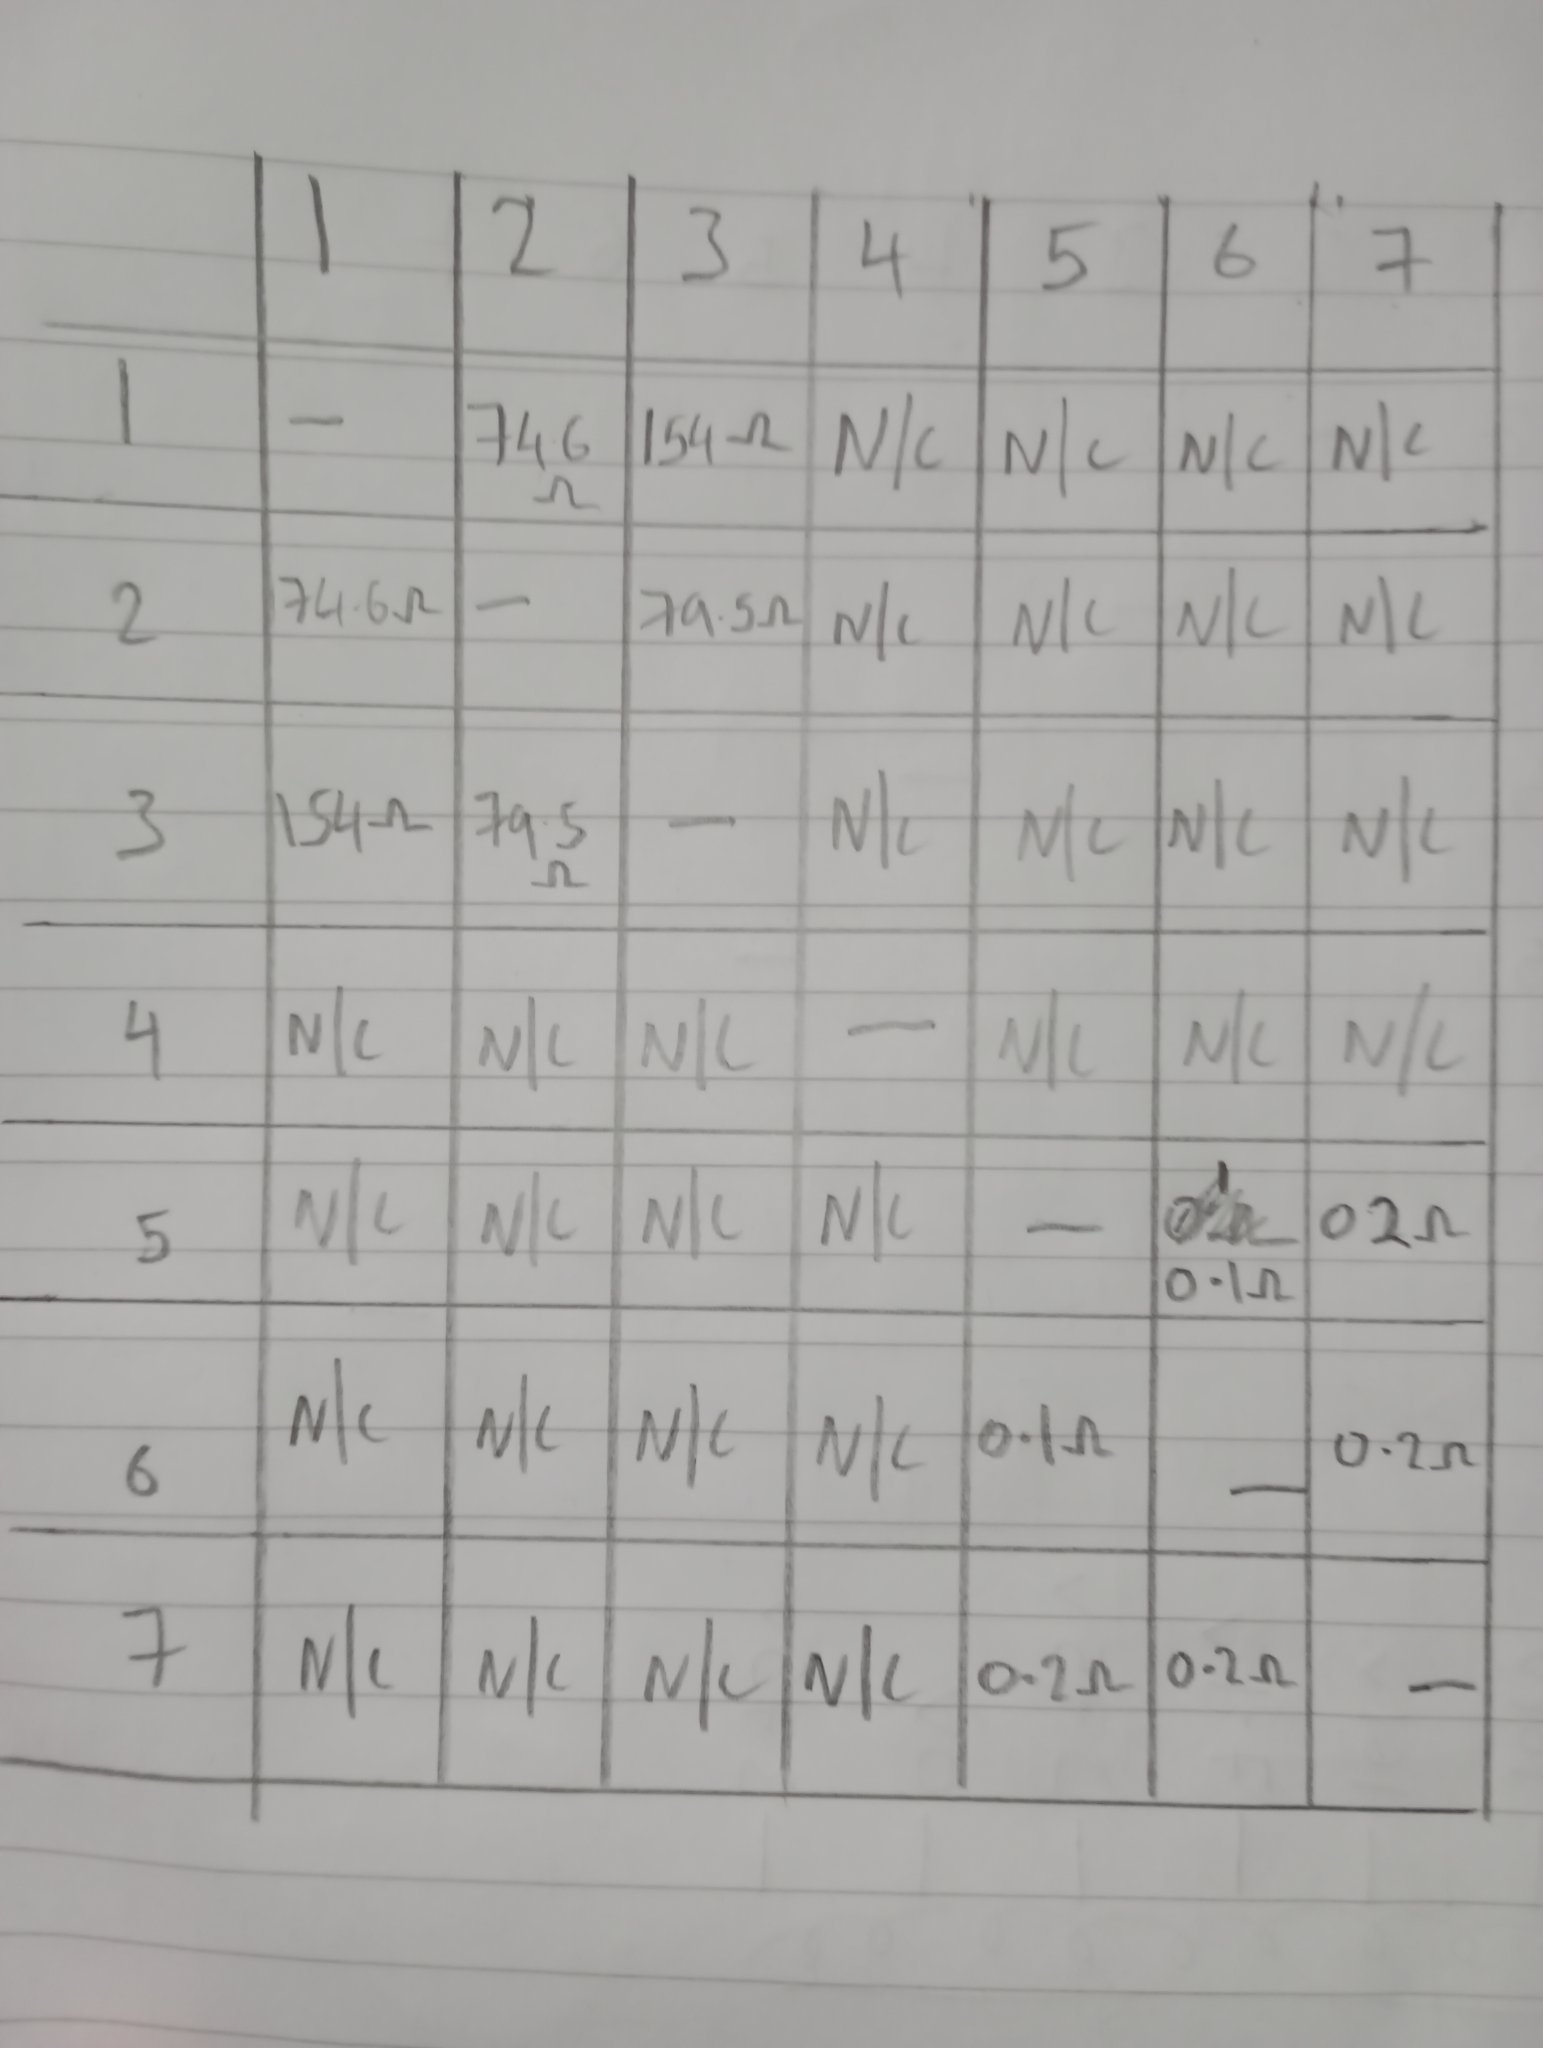 1 2 3 4 5 6 7
1 — 74.6 Ω 154Ω N/C N/C N/C N/C
2 74.6Ω — 79.5Ω N/C N/C N/C N/C
3 154Ω 79.5 Ω — N/C N/C N/C N/C
4 N/C N/C N/C — N/C N/C N/C
5 N/C N/C N/C N/C — 0.1Ω 02Ω
6 N/C N/C N/C N/C 0.1Ω — 0.2Ω
7 N/C N/C N/C N/C 0.2Ω 0.2Ω —